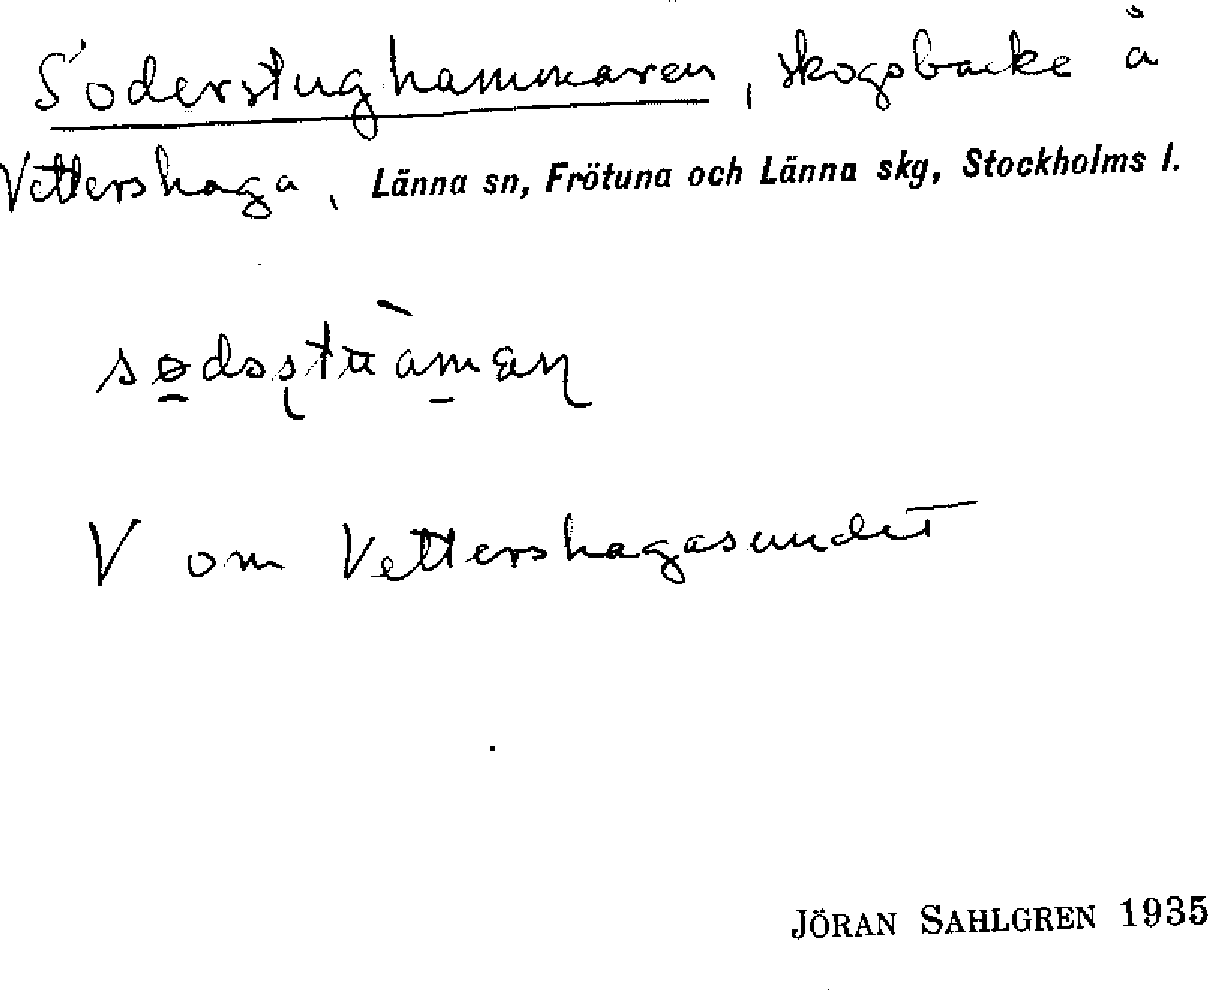 Söderstughammaren, skogsbacke å
Vettershaga, Länna sn, Frötuna och Länna skg, Stockholms l.
V om Vettershagasundet
JÖRAN SAHLGREN 1935